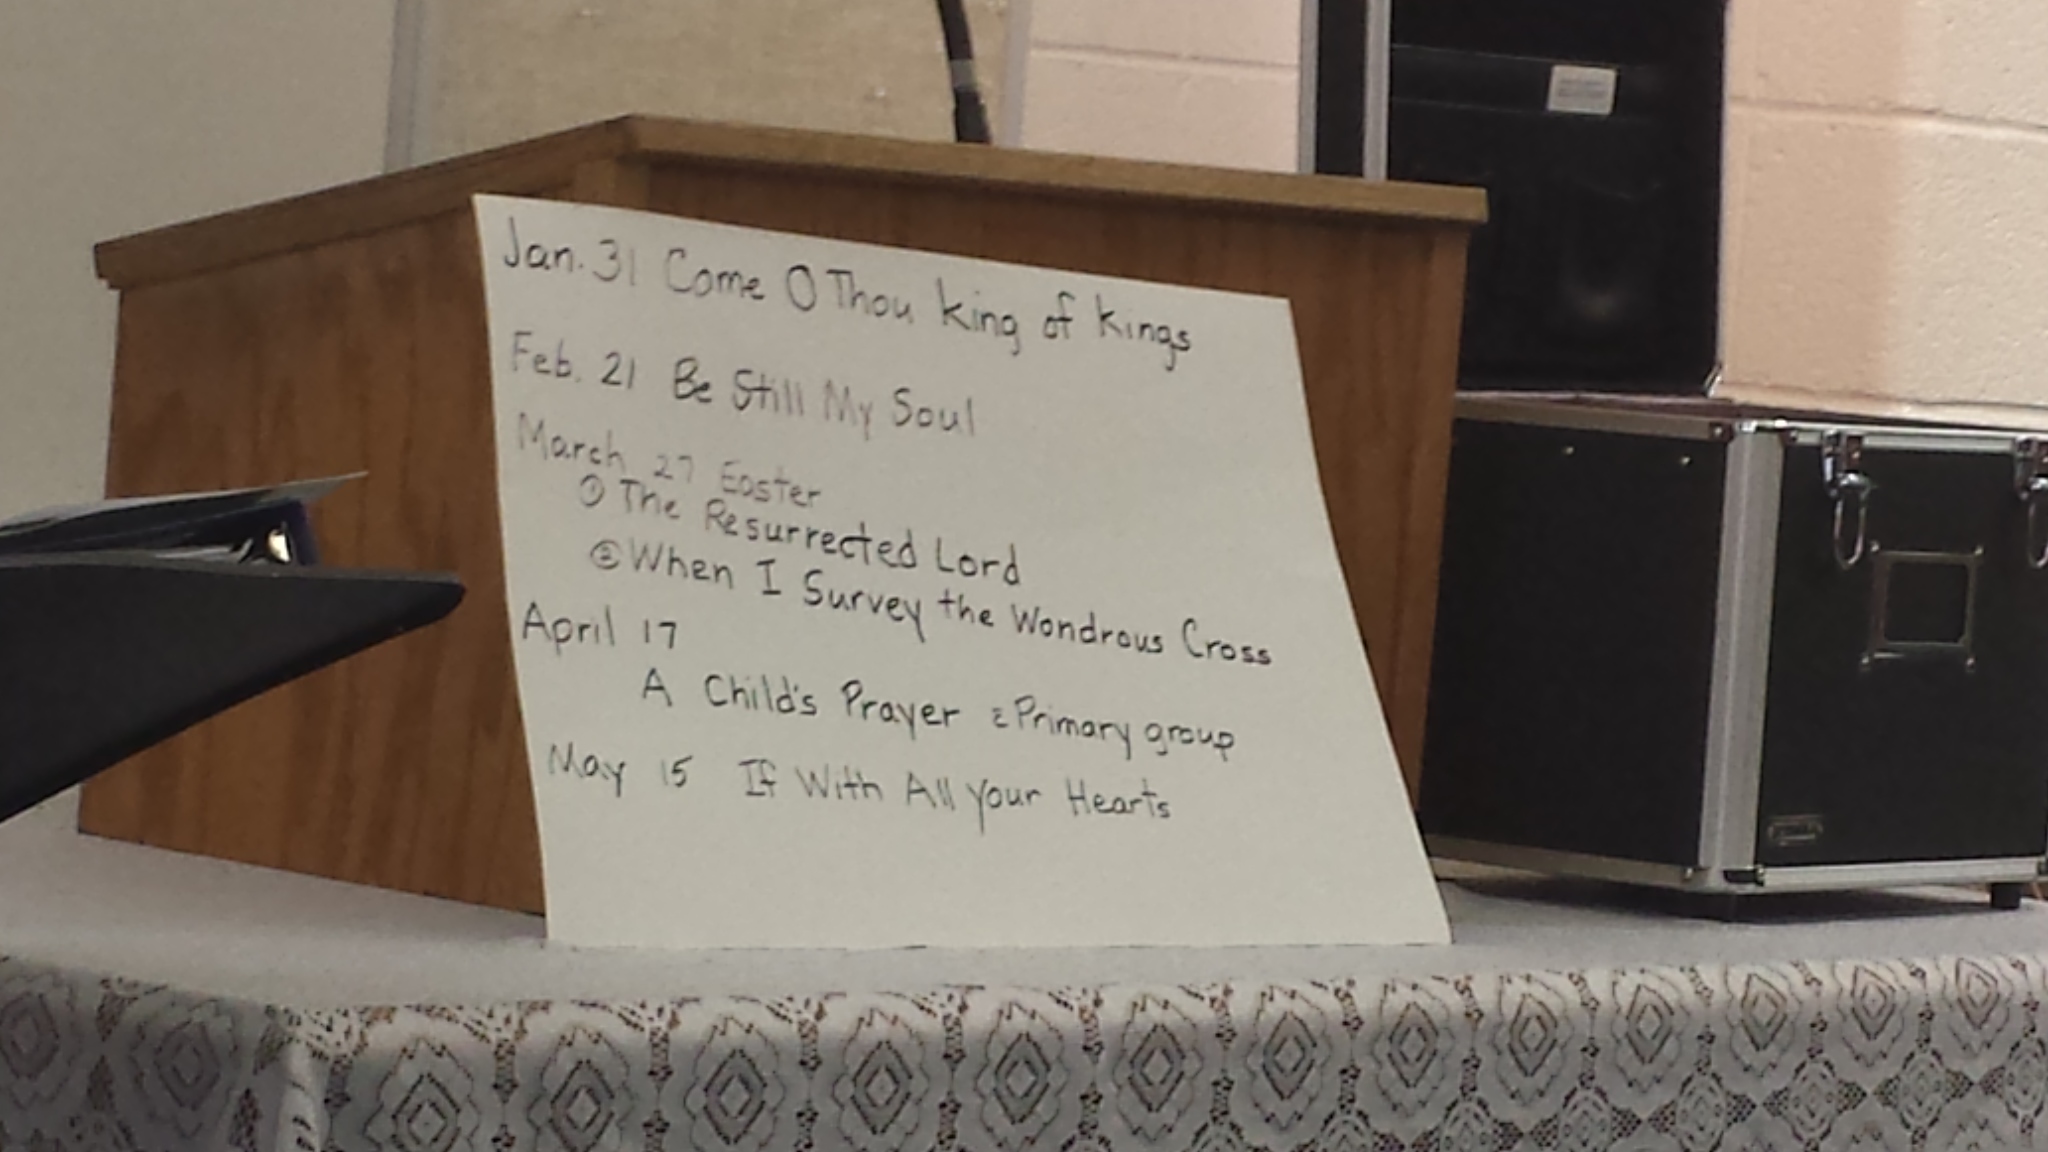 Jan. 31 Come O Thou King of Kings
Feb. 21 Be Still My Soul
March 27 Easter
① The Resurrected Lord
② When I Survey the Wondrous Cross
April 17
A Child's Prayer c̄ Primary group
May 15 If With All Your Hearts